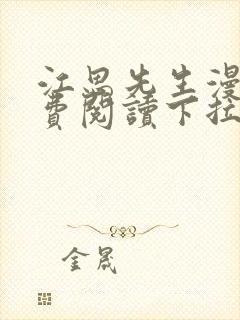 江畏先生漫
費閱讀下拉
金晟